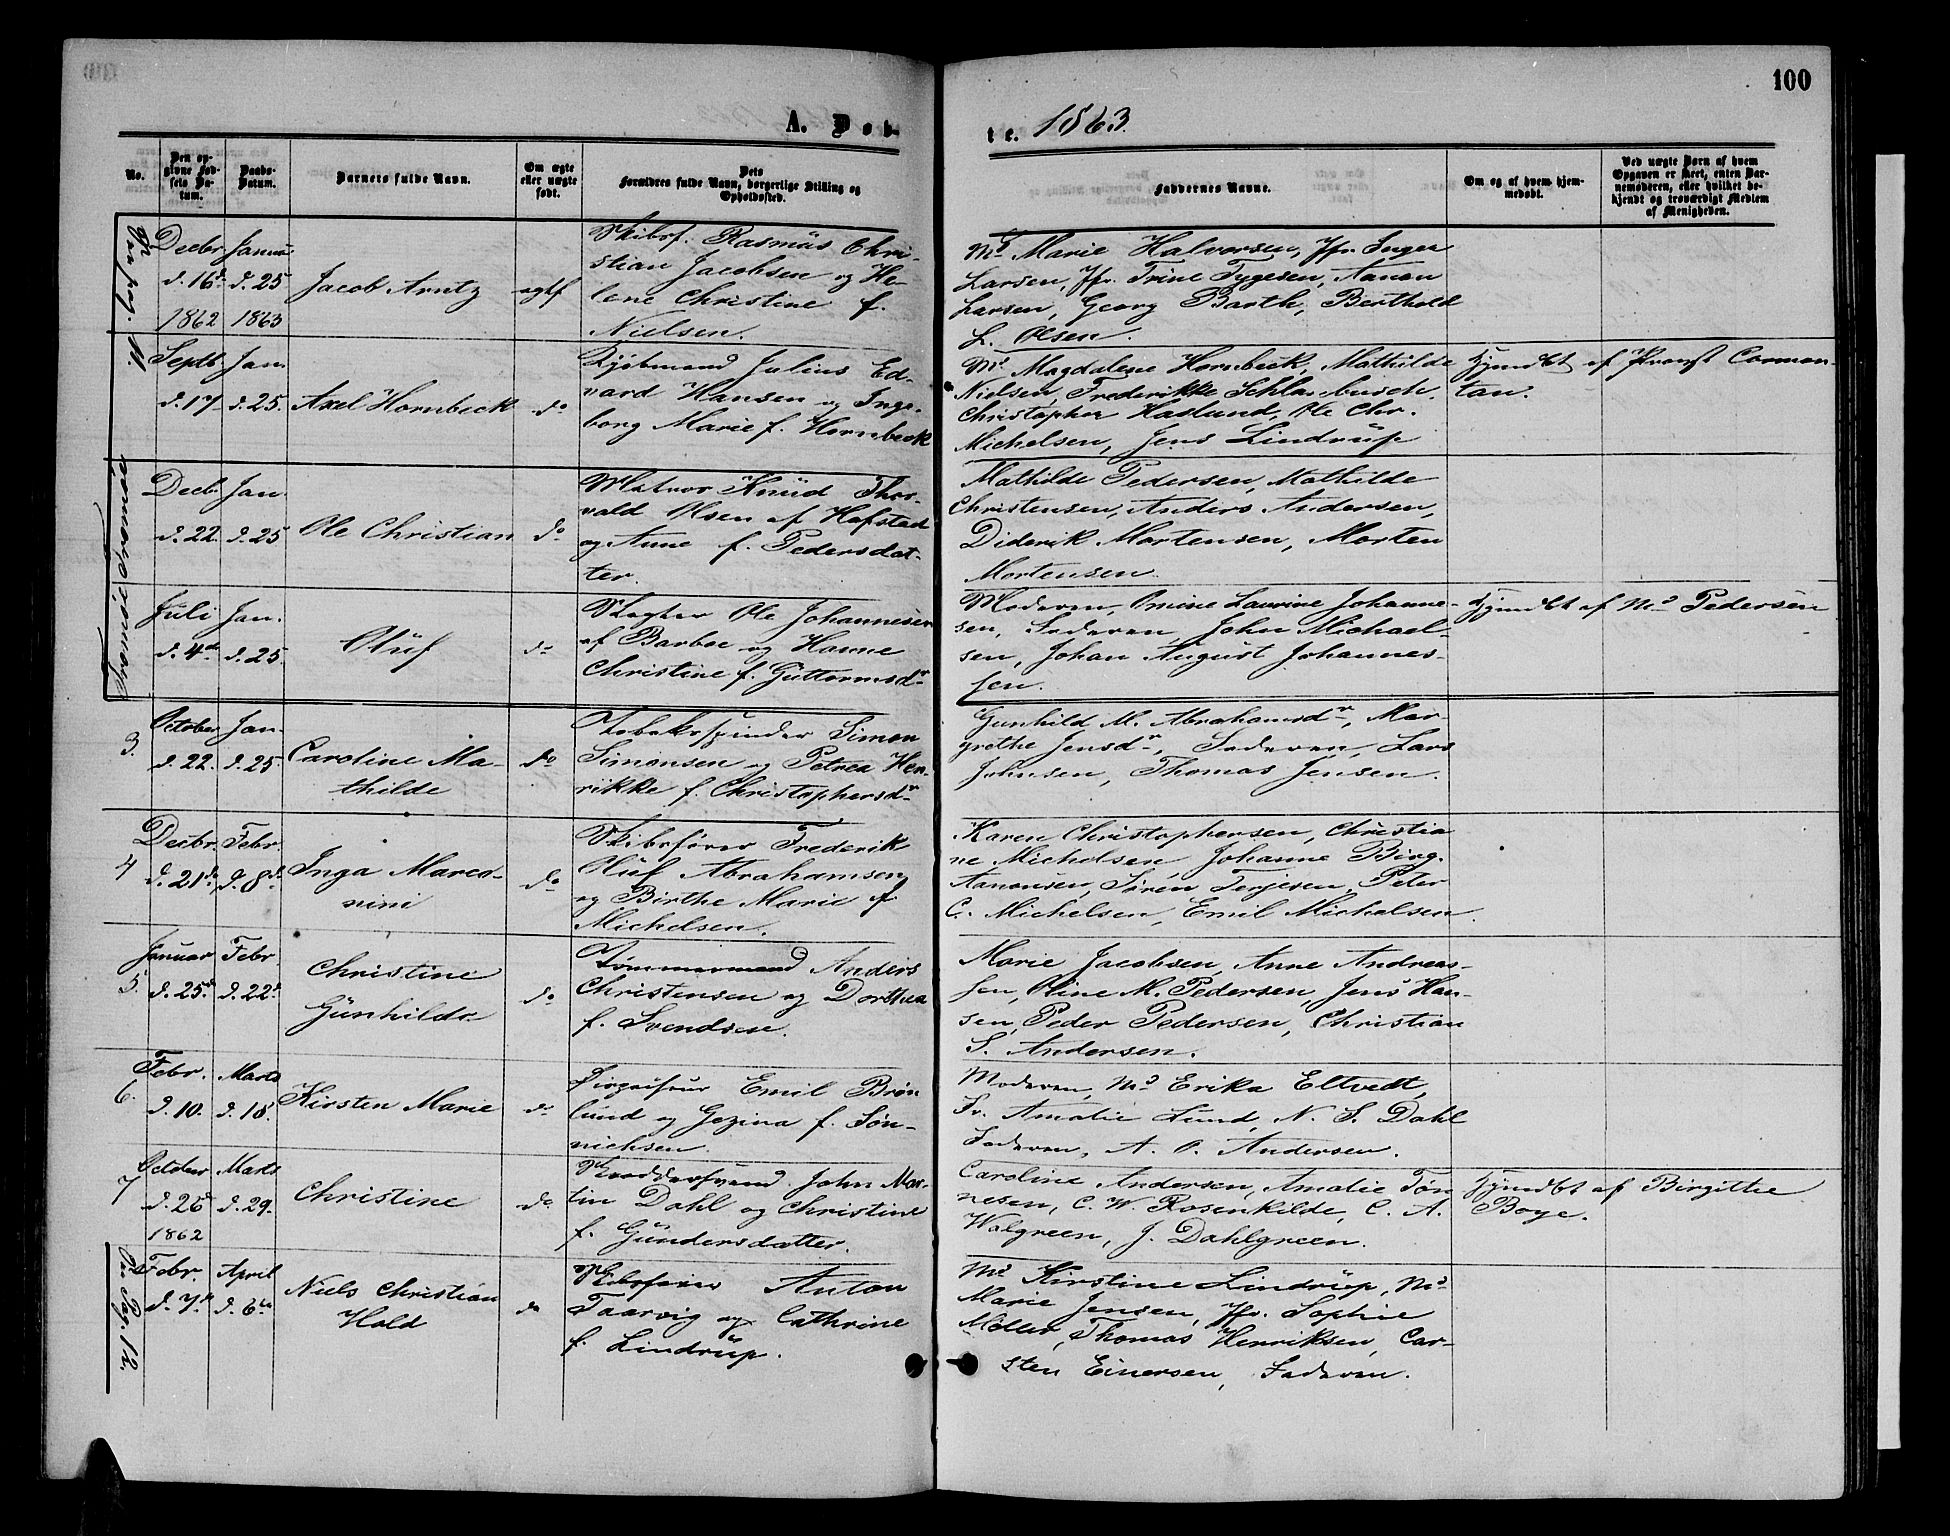 100
A. Døb-
te. 1863.
No.
Den op-
givne Fød-
sels Da-
tum.
Daabs-
Datum.
Barnets fulde Navn.
Om ægte
eller uægte
født.
Dets
Forældres fulde Navn, borgerlige Stilling og
Opholdssted.
Faddernes Navne.
Om og af hvem hjem-
medøbt.
Ved uægte Børn af hvem
Opgaven er skeet, enten Bar-
nemoderen, eller hvilket be-
kjendt og troværdigt Medlem
af Menigheden.
Decbr
d. 16d.
1862
Januar
d. 25
1863
Jacob Arntz
ægtf
Skibsf. Rasmus Chri-
stian Jacobsen og He-
lene Christine f.
Nielsen.
Md Marie Halvorsen, Jfr. Inger
Larsen, Jfr. Trine Tygesen, Aanon
Larsen, Georg Barth, Berthold
L. Olsen.
Septb.
d. 17
Jan.
d. 25.
Axel Hornbeck
do
Kjøbmand Julius Ed-
vard Hansen og Inge-
borg Marie f. Hornbeck
Md Magdalene Hornbeck, Mathilde
Nielsen, Frederikke Schlambusch,
Christopher Haslund, Ole Chr.
Michelsen, Jens Lindrup
Hjemdbt af Provst Commen-
tau.
Decb.
d. 22.
Jan.
d. 25
Ole Christian
do
Matros Knud Thor-
vald Olsen af Hafstad
og Anne f. Pedersdat-
ter.
Mathilde Pedersen, Mathilde
Christensen, Anders Andersen,
Diderik Mortensen, Morten
Mortensen.
Juli
d. 4de
Jan.
d. 25.
Oluf
do
Slagter Ole Johannesen
af Barboe og Hanne
Christine f. Guttormsdr
Moderen, Omine Laurine Johanne-
sen, Faderen, John Michael-
sen, Johan August Johannes-
sen.
Hjemdbt af Md Pedersen
3.
October
d. 22.
Jan.
d. 25.
Caroline Ma-
thilde
do
Tobakspinder Simon
Simonsen og Petrea Hen-
rikke f. Christophersdr
Gunhild M. Abrahamsdr, Mar-
grethe Jensdr, Faderen, Lars
Johnsen, Thomas Jensen.
4
Decbr.
d. 21de
Febr.
d. 8d.
Inga Marea-
nini
do
Skibsfører Frederik
Oluf Abrahamsen
og Birthe Marie f
Michelsen.
Karen Christophersen, Christia
ne Michelsen, Johanne Birg.
Aanonsen, Søren Terjesen, Peter
C. Michelsen, Emil Michelsen.
5.
Januar
d. 25d
Febr
d. 22d
Christine
Gunhilda
do
Tømmermand Anders
Christensen og Dorthea
f. Svendsen.
Marie Jacobsen, Anne Andreas-
sen, Oline M. Pedersen, Jens Han-
sen, Peder Pedersen, Christian
S. Andersen.
6.
Febr.
d. 10.
Marts
d. 18.
Kirsten Marie
do
Emil Brøn
lund og Gezina f. Søn-
nichsen.
Moderen, Md Erika Eltvedt,
Fr. Amalie Lund, N. S. Dahl
Faderen, A. O. Andersen.
7
October
d. 26d
1862
Marts
d. 29.
Christine
do
Skræddersvend John Mar-
tin Dahl og Christine
f. Gundersdatter.
Caroline Andersen, Amalie Tøn
nesen, C. W. Rosenkilde, C. A.
Walgreen, J. Dahlgreen.
Hjemdbt af Birgitthe
Boye.
Febr.
d. 7d
April
d. 6te
Niels Christian
Hald
do
Skibsfører Anton
Taarvig og Cathrine
f. Lindrup.
Md Kirstine Lindrup, Md
Marie Jensen, Jfr. Sophie
Møller, Thomas Henriksen, Car-
sten Einersen, Faderen.